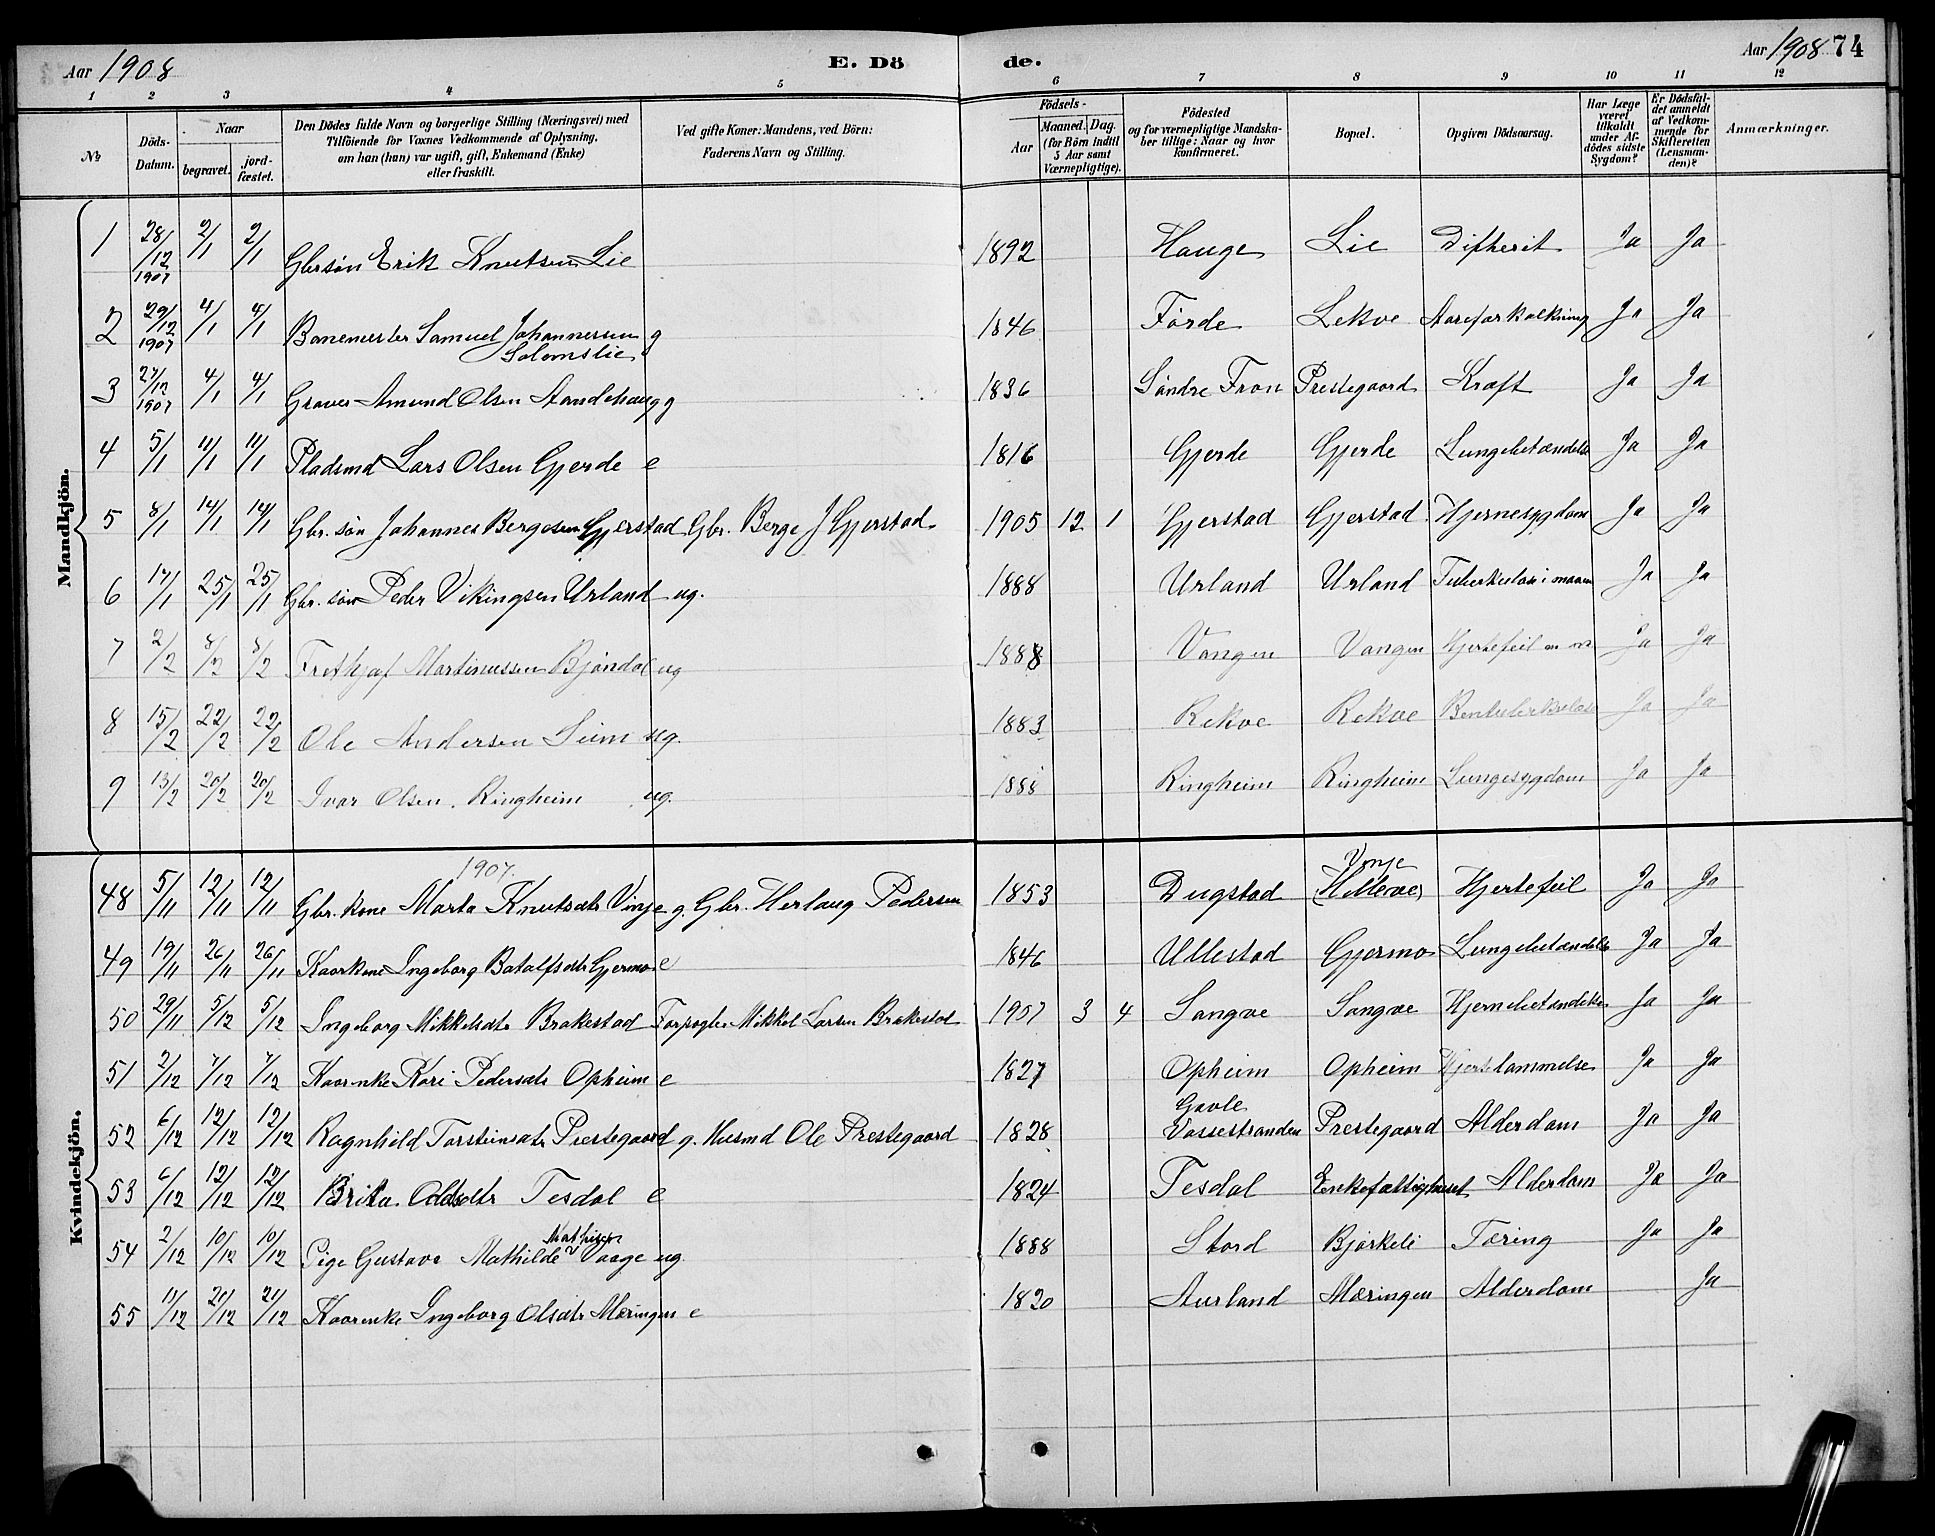 Aar 1908 E. Dö de. Aar 1908 74
1 2 3 4 5 6 7 8 9 10 11 12
No
Döds-Datum.
Naar begravet. jordfæstet.
Den Dödes fulde Navn og borgerlige Stilling (Næringsvei) med Tilföiende for Voxnes Vedkommende af Oplysning, om han (hun) var ugift, gift, Enkemand (Enke) eller fraskilt.
Ved gifte Koner: Mandens, ved Börn: Faderens Navn og Stilling.
Födsels- Aar Maaned. Dag. (for Börn indtil 5 Aar samt Værnepligtige).
Födested og for værnepligtige Mandskaber tillige: Naar og hvor konfirmeret.
Bopæl.
Opgiven Dödsaarsag.
Har Læge været tilkaldt under Afdödes sidste Sygdom?
Er Dödsfaldet anmeldt af Vedkommende for Skifteretten (Lensmanden)?
Anmærkninger.
Mandkjön.
1 28/12 1907 2/1 2/1 Gbrsön Erik Knutsen Lie 1892 Hauge Lie Difterit Ja Ja
2 29/12 1907 4/1 4/1 Banemester Samuel Johannesen Solemslie g 1846 Förde Lekve Aareforkalkning Ja Ja
3 27/12 1907 4/1 4/1 Graver Amund Olsen Aandehaug g 1836 Söndre Fron Prestegaard Kræft Ja Ja
4 5/1 11/1 11/1 Pladsmd Lars Olsen Gjerde e 1816 Gjerde Gjerde Lungebetændelse Ja Ja
5 8/1 14/1 14/1 Gbr. sön Johannes Bergesen Gjerstad Gbr. Berge J Gjerstad 1905 12 1 Gjerstad Gjerstad Hjernesygdom Ja Ja
6 17/1 25/1 25/1 Gbr. sön Peder Vikingsen Urland ug. 1888 Urland Urland Tuberkulose i maven Ja Ja
7 2/2 8/2 8/2 Frithjof Martinussen Bjöndal ug 1888 Vangen Vangen Hjertefeil Ja Ja
8 15/2 22/2 22/2 Ole Andersen Seim ug. 1883 Rekve Rekve Bentuberkulose Ja Ja
9 13/2 20/2 20/2 Ivar Olsen Ringheim ug. 1888 Ringheim Ringheim Lungesygdom Ja Ja
Kvindekjön.
1907.
48 5/11 12/11 12/11 Gbr. kone Marta Knutsdtr Vinje g. Gbr. Herlaug Pedersen 1853 Dugstad Vinje (Helleve) Hjertefeil Ja Ja
49 19/11 26/11 26/11 Kaarkone Ingeborg Batalfsdtr Gjermo e 1846 Ullestad Gjermo Lungebetændelse Ja Ja
50 29/11 5/12 5/12 Ingeborg Mikkelsdtr Brakestad Forpagter Mikkel Larsen Brakestad 1907 3 4 Sangve Sangve Hjernebetændelse Ja Ja
51 2/12 7/12 7/12 Kaarenke Kari Pedersdtr Opheim e 1827 Opheim Opheim Hjertelammelse Ja Ja
52 6/12 12/12 12/12 Ragnhild Torsteinsdtr Prestegaard g. Husmd Ole Prestegaard 1828 Gavle Vossestranden Prestegaard Alderdom Ja Ja
53 6/12 12/12 12/12 Brita Oddsdtr Tesdal e 1824 Tesdal Enkefattighuset Alderdom Ja Ja
54 2/12 10/12 10/12 Pige Gustava Mathilde Mathisen Vaage ug. 1888 Stord Bjørkeli Tæring Ja Ja
55 11/12 21/12 21/12 Kaarenke Ingeborg Olsdtr Mæringen e 1820 Aurland Mæringen Alderdom Ja